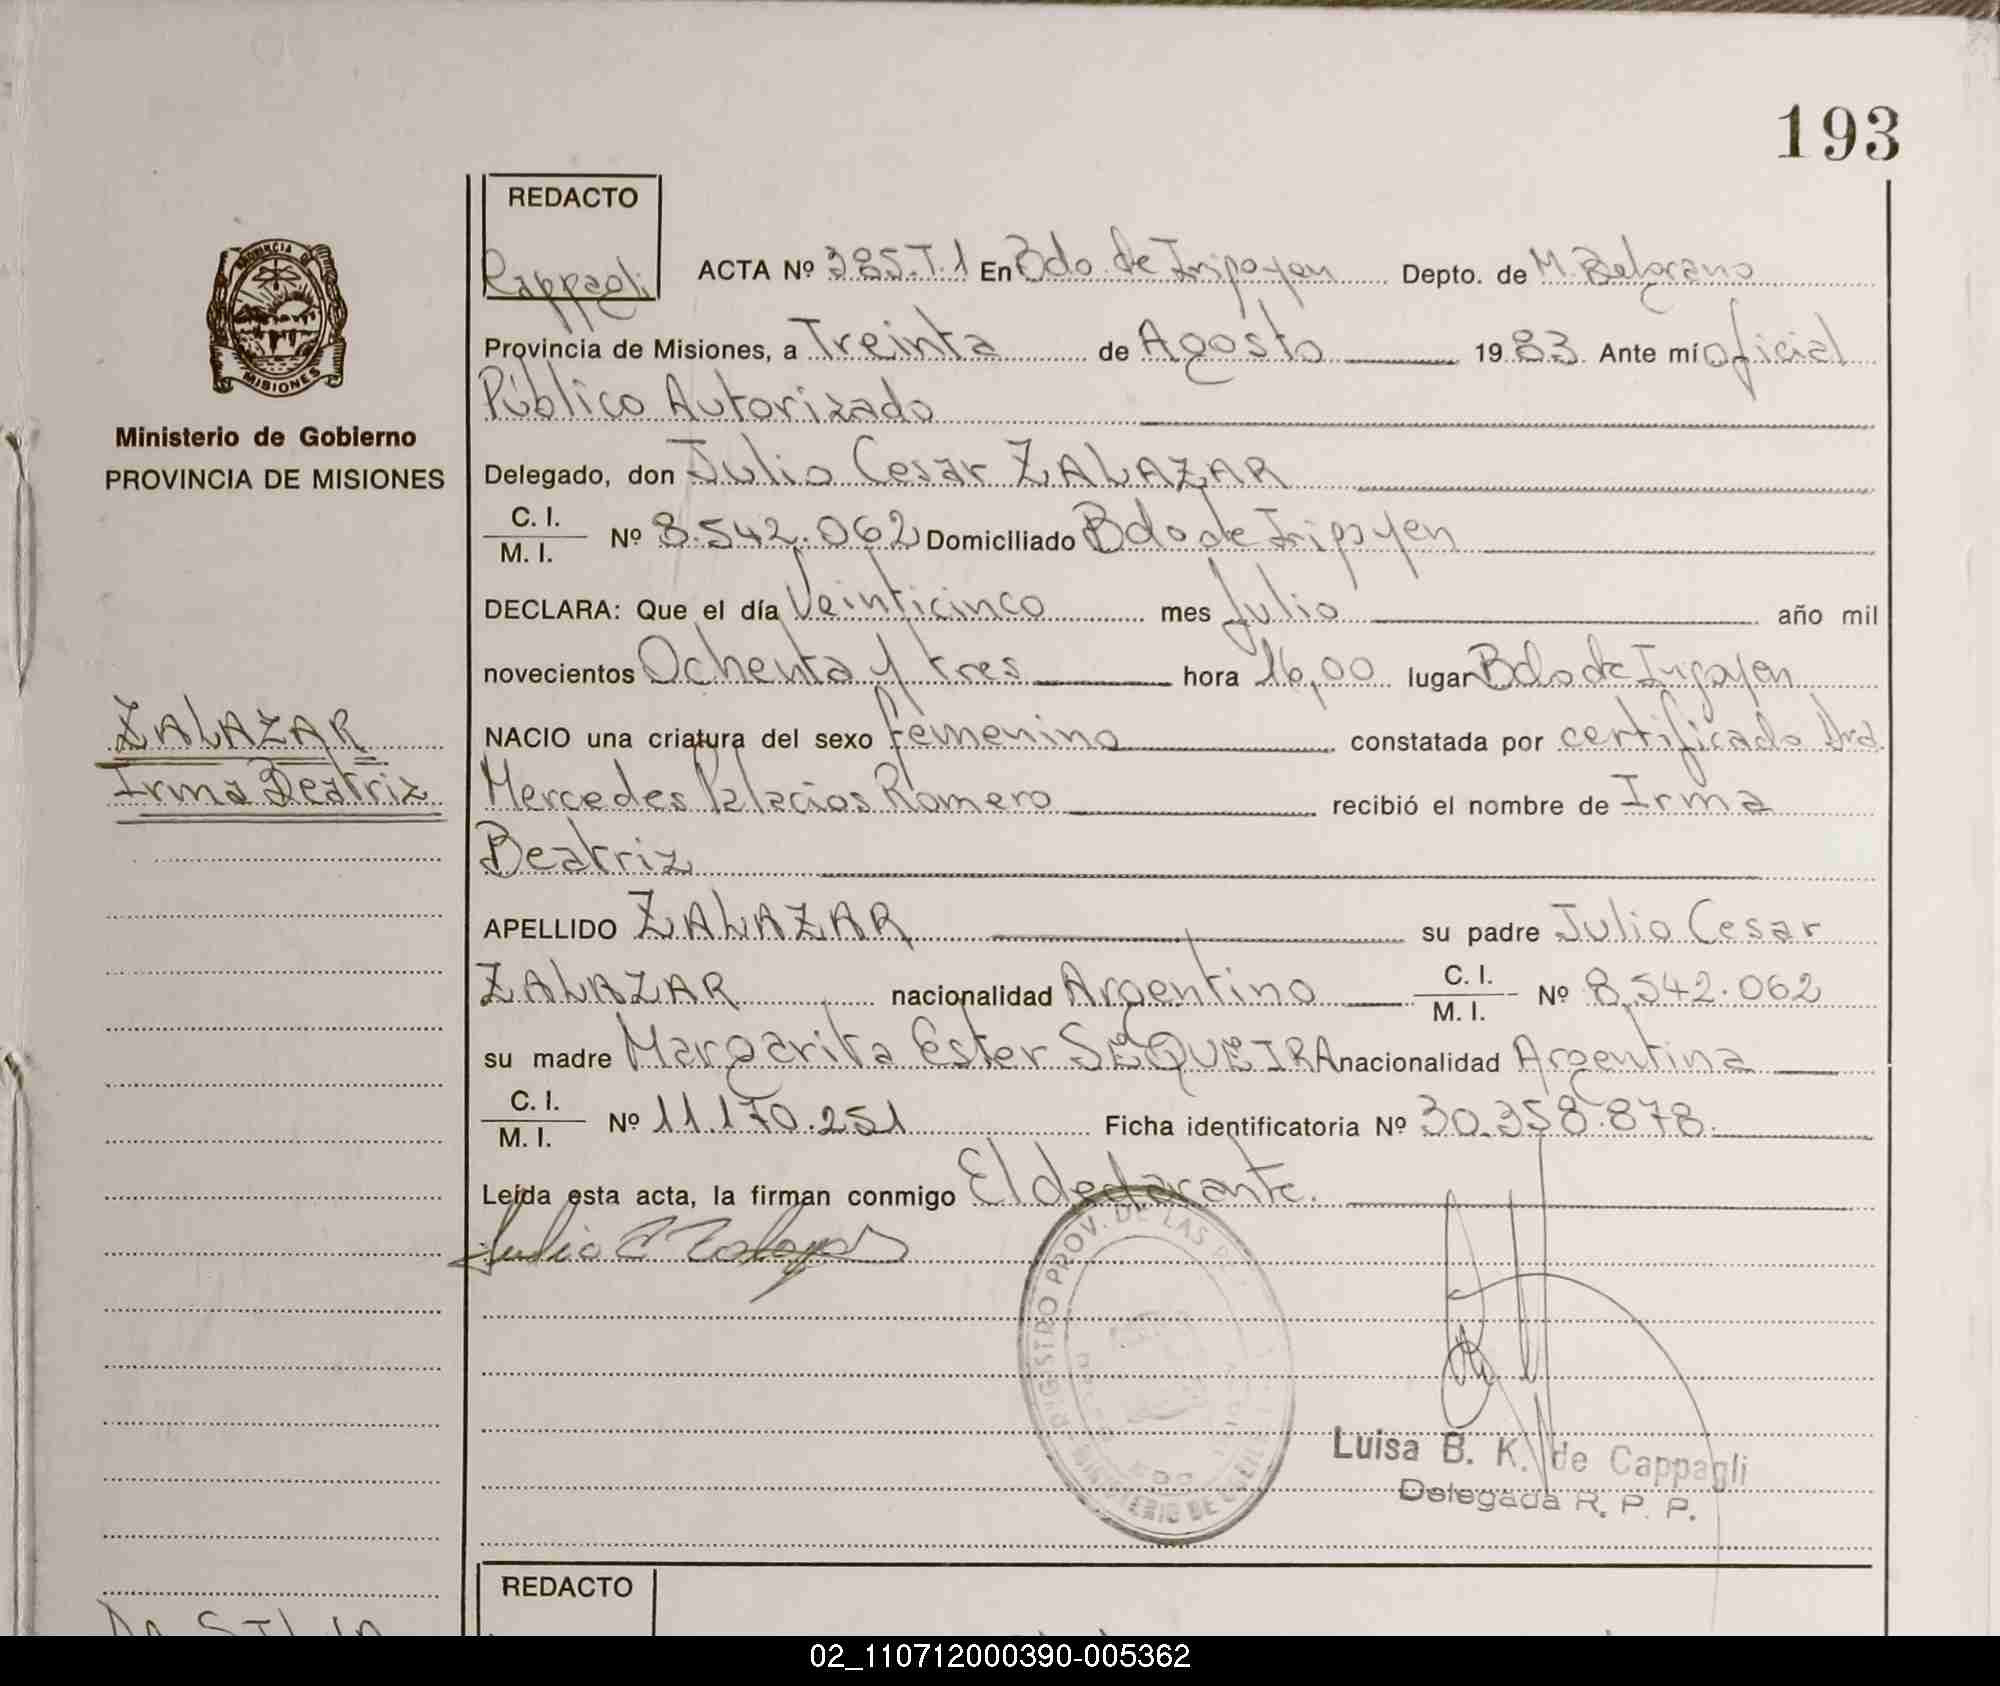 193
REDACTO
Cappagli
ACTA Nº 385.T.1 En Bdo. de Irigoyen Depto. de M. Belgrano
Provincia de Misiones, a Treinta de Agosto 1983 Ante mí Oficial
Público Autorizado
Delegado, don Julio Cesar ZALAZAR
C. I.
M. I. Nº 8.542.062 Domiciliado Bdo de Irigoyen
DECLARA: Que el día Veinticinco mes Julio año mil
novecientos Ochenta y tres hora 16,00 lugar Bdo de Irigoyen
NACIO una criatura del sexo femenino constatada por certificado Dra.
Mercedes Palacios Romero recibió el nombre de Irma
Beatriz
APELLIDO ZALAZAR su padre Julio Cesar
ZALAZAR nacionalidad Argentino C. I.
M. I. Nº 8.542.062
su madre Margarita Ester SEQUEIRA nacionalidad Argentina
C. I.
M. I. Nº 11.170.251 Ficha identificatoria Nº 30.358.878.
Leída esta acta, la firman conmigo El declarante.
Julio C Zalazar
PROVINCIA DE
MISIONES
Ministerio de Gobierno
PROVINCIA DE MISIONES
ZALAZAR
Irma Beatriz
REGISTRO PROV. DE LAS
MINISTERIO DE
Luisa B. K. de Cappagli
Delegada R. P. P.
REDACTO
02_110712000390-005362